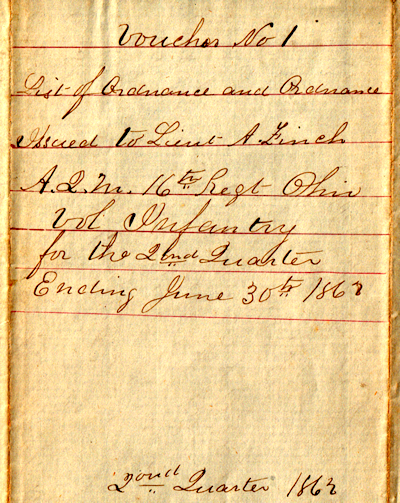 Voucher No 1
List of Ordnance and Ordnance
Issued to Lieut A. Finch
A.Q.M. 16th Regt Ohio
Vol Infantry
for the 2nd Quarter
Ending June 30th 1862
2ond Quarter 1862